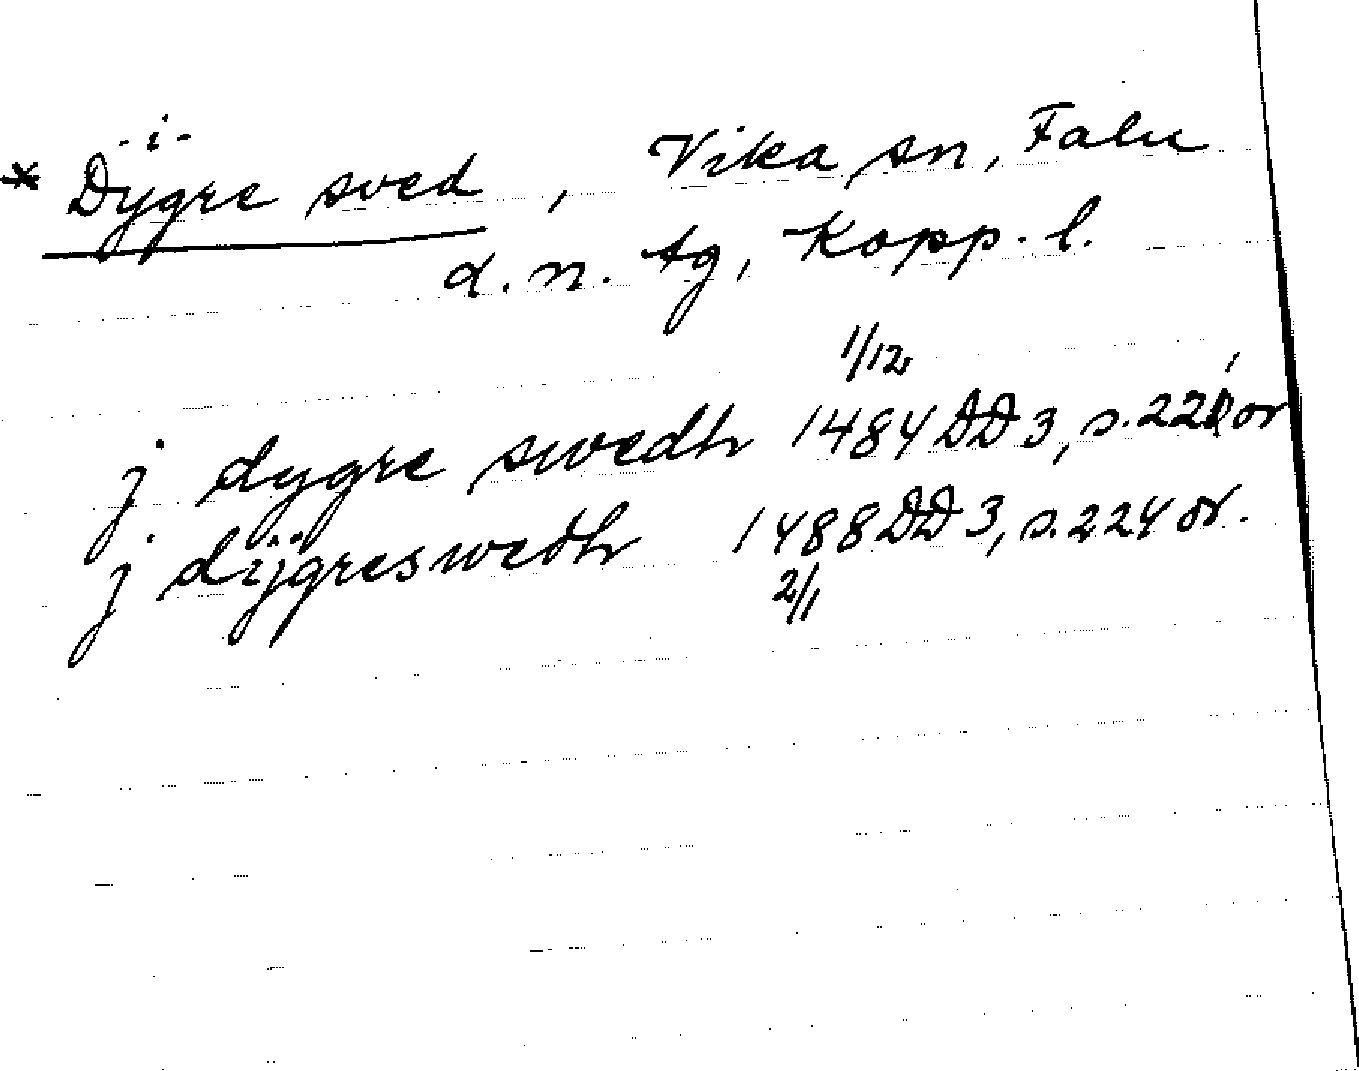 -i-
* Dygre sved, Vika sn, Falu
d. n. tg, Kopp. l.
1/12
j dygre swedh 1484 DD 3, s. 221 or
j dÿgreswedh 1488 DD 3, s. 224 or.
2/1